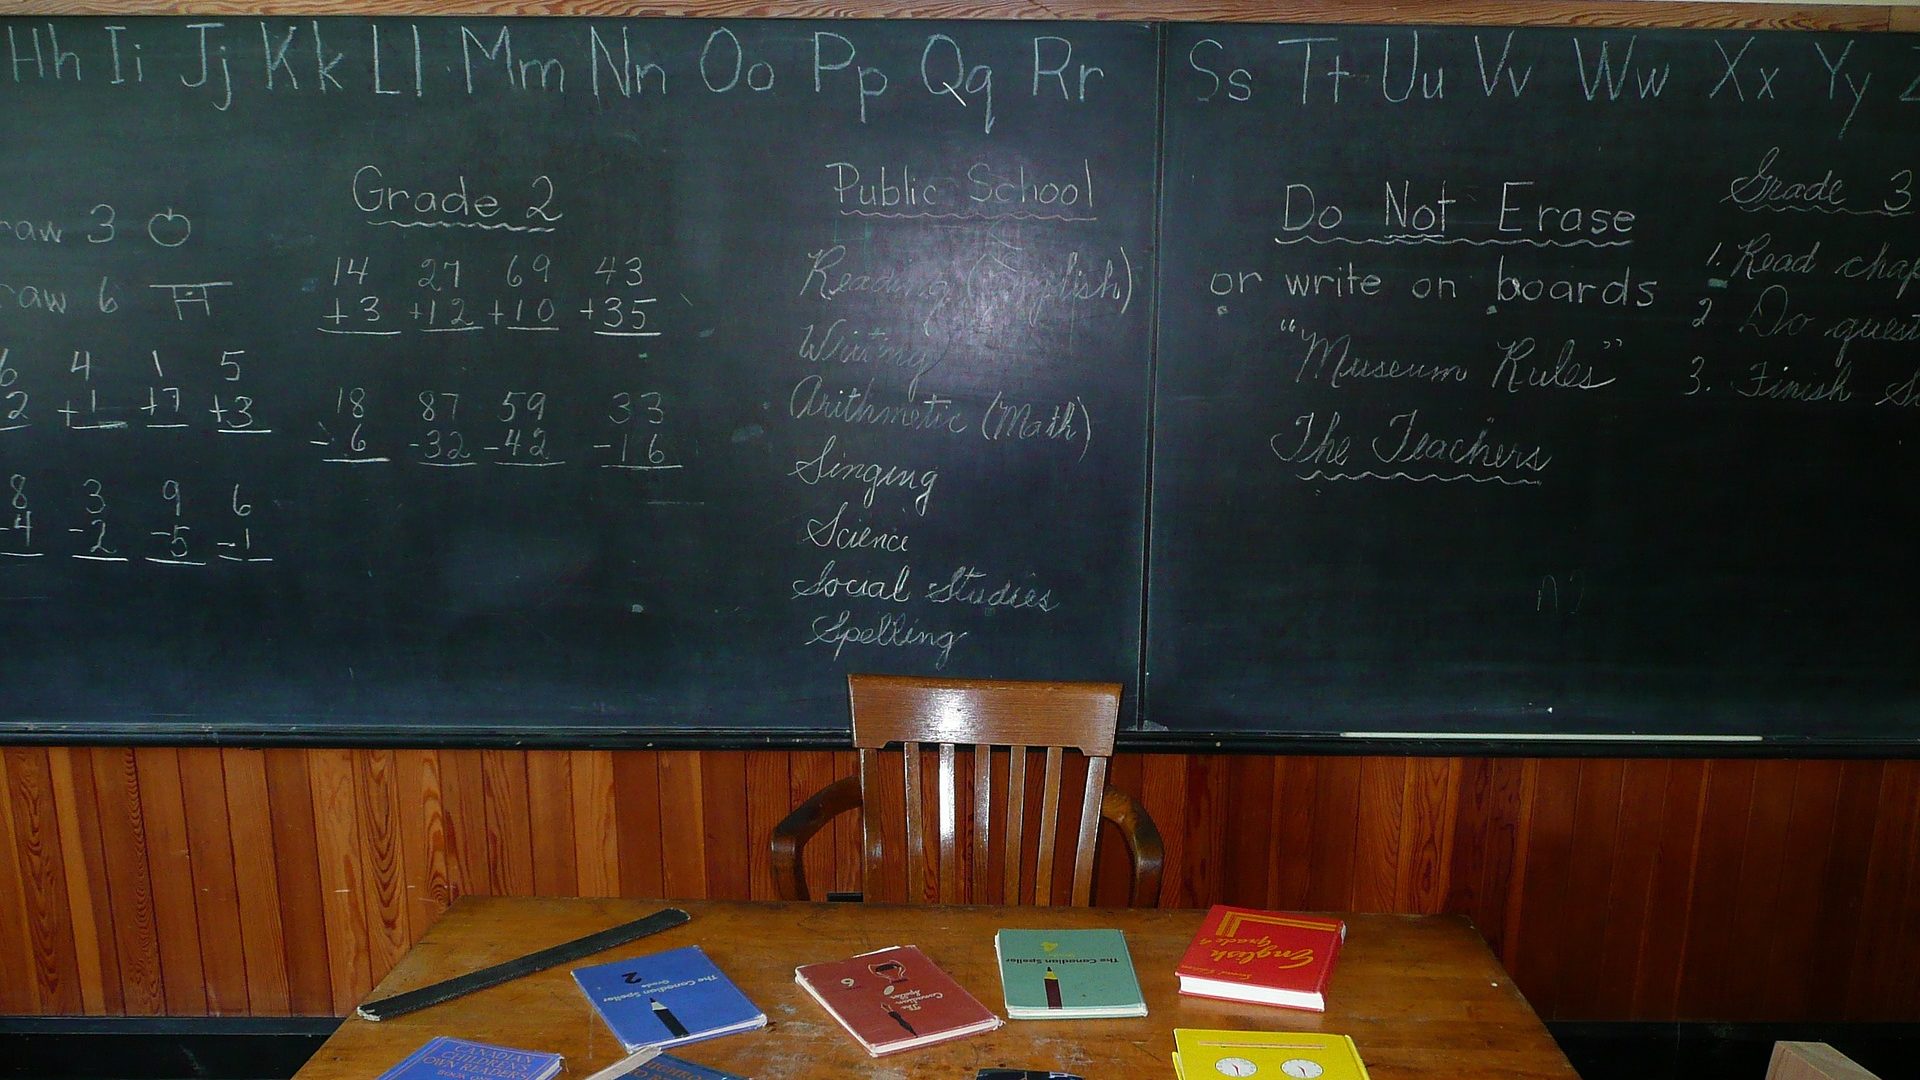 Hh Ii Jj Kk Ll Mm Nn Oo Pp Qq Rr Ss Tt Uu Vv Ww Xx Yy
3
6
4 1 5
2 +1 +7 +3
8 3 9 6
-4 -2 -5 -1
Grade 2
14 27 69 43
+3 +12 +10 +35
18 87 59 33
-6 -32 -42 -16
Public School
Reading (English)
Writing
Arithmetic (Math)
Singing
Science
Social Studies
Spelling
Do Not Erase
or write on boards
"Museum Rules"
The Teachers
Grade 3
1. Read
2 Do
3. Finish
The Canadian Speller
Grade
2
The
Canadian
Speller
6
The Canadian Speller
4
English
Grade 4
CANADIAN
CHILDREN'S
OWN READERS